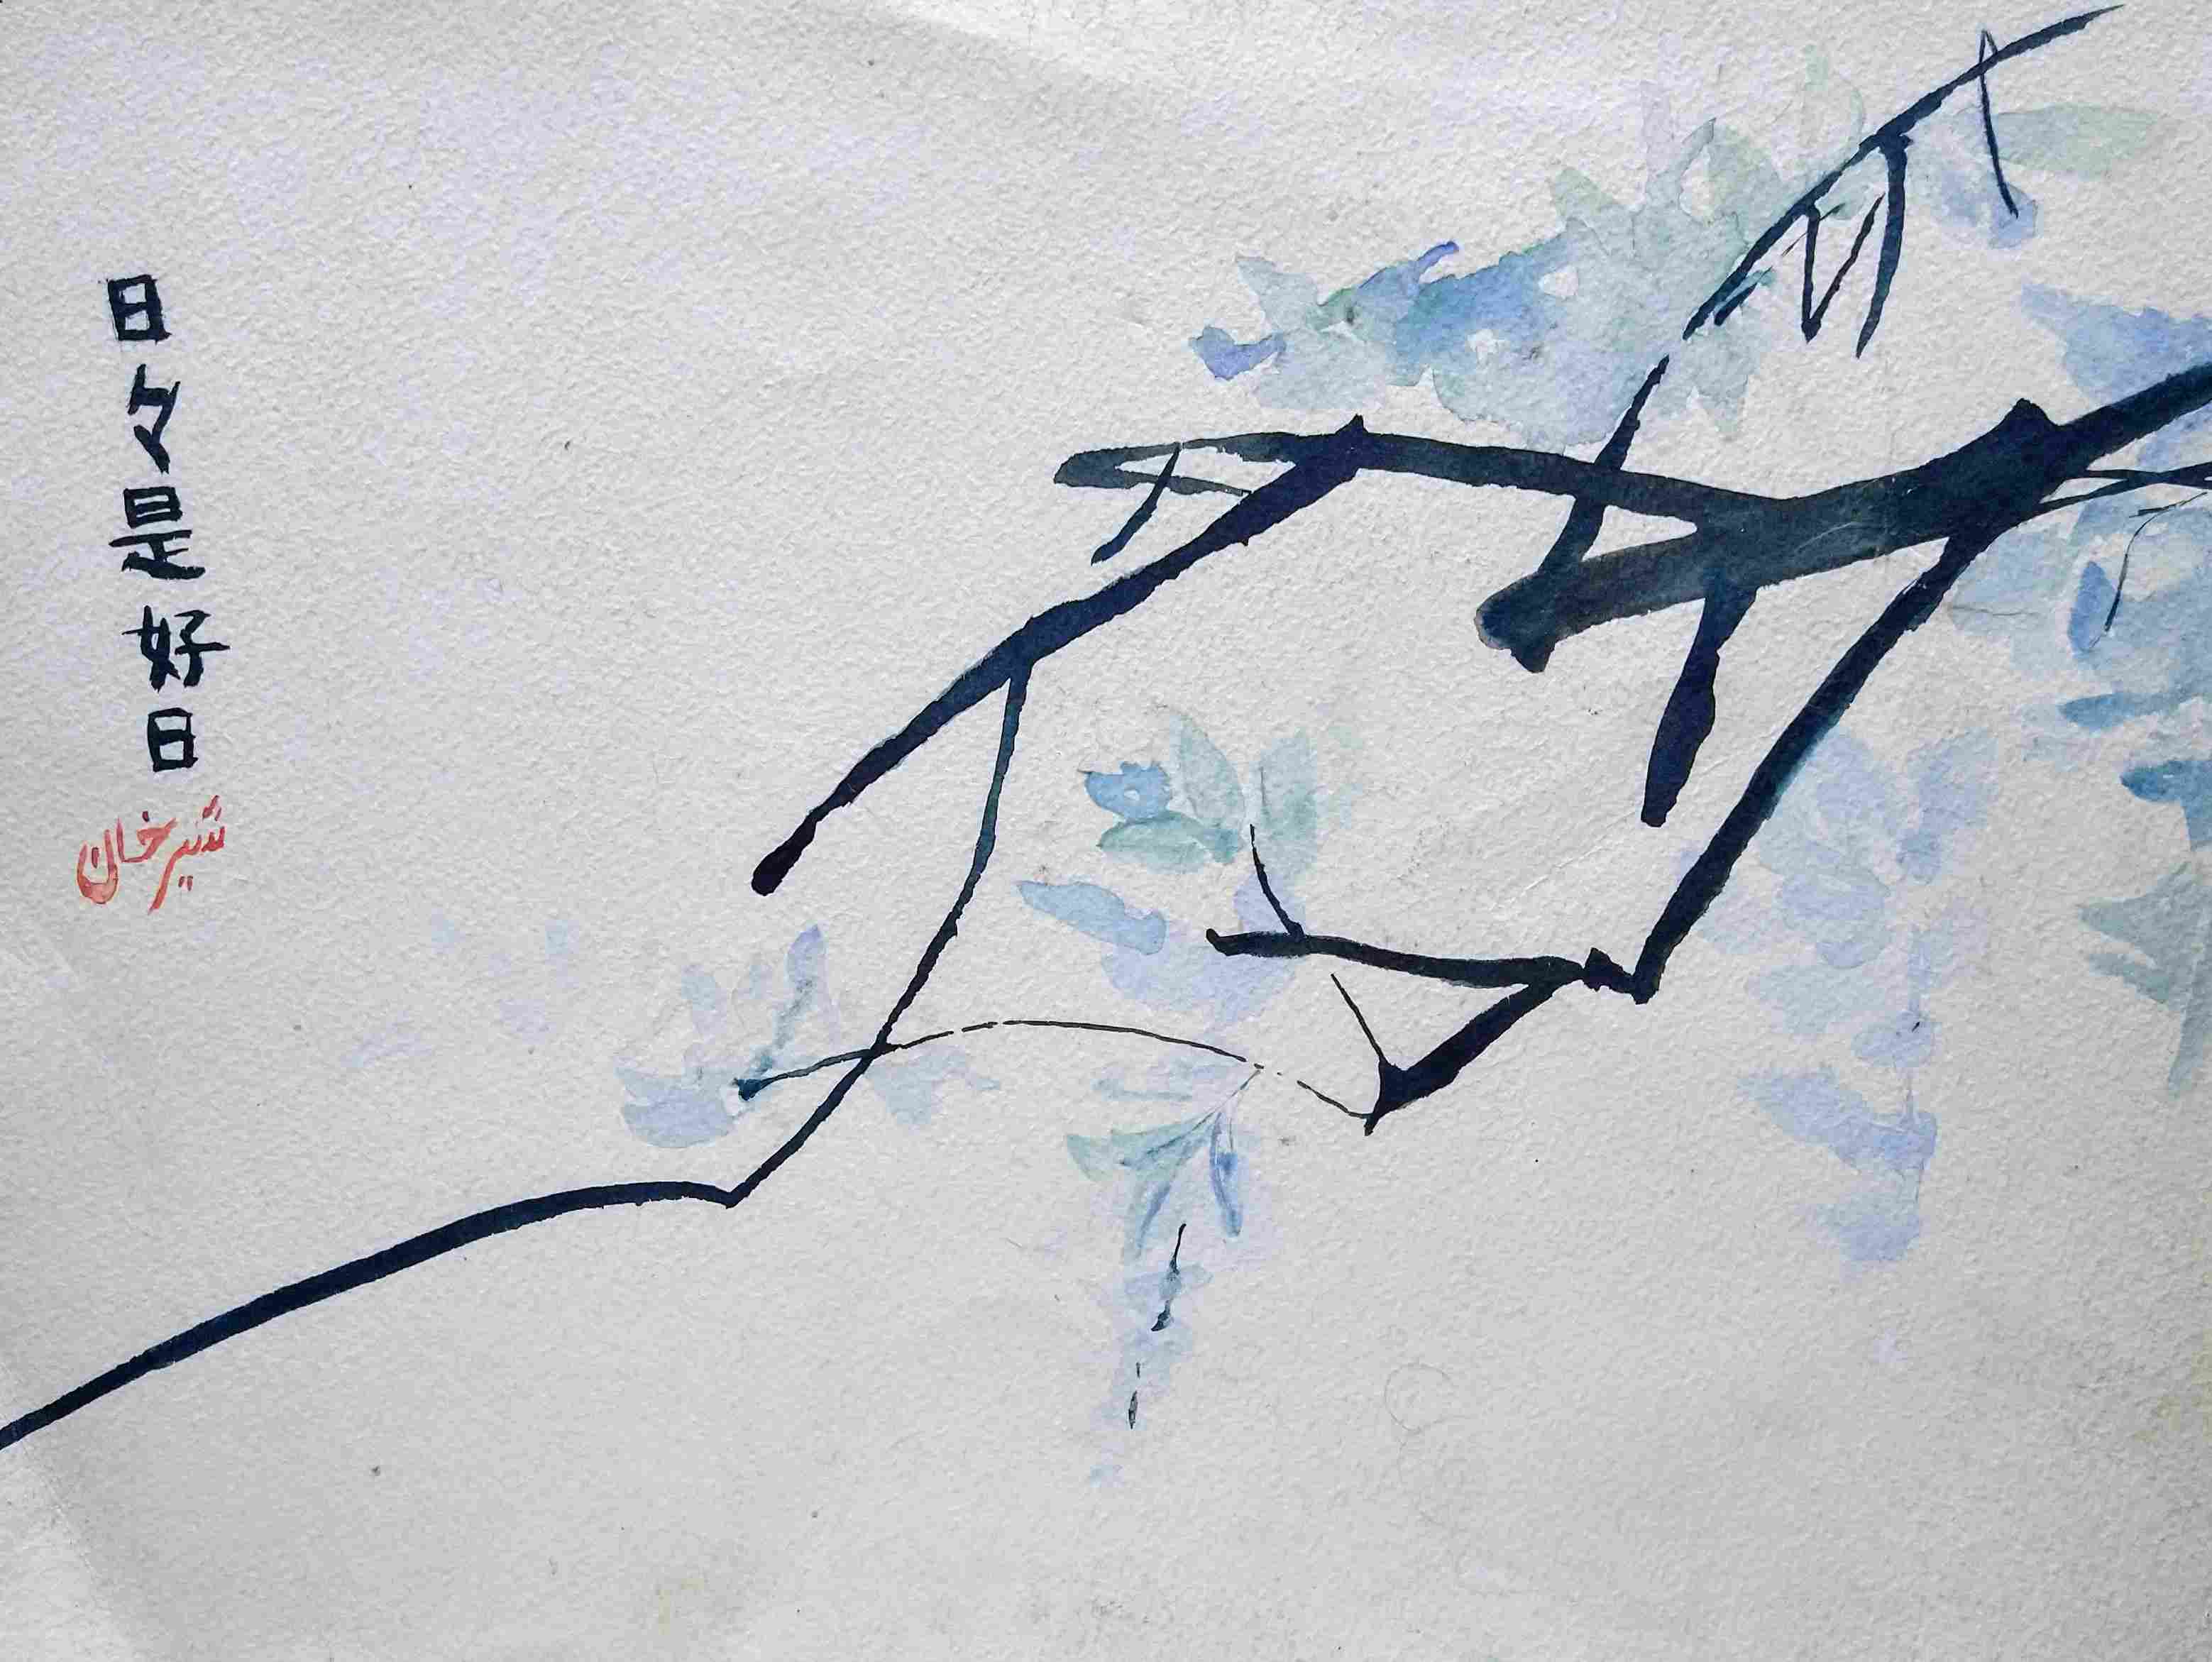 日々是好日
شیرخان